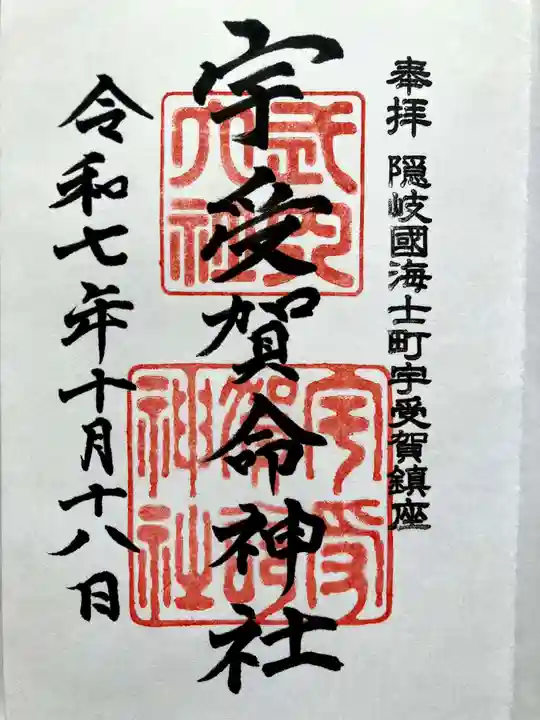 奉拝 隠岐國海士町宇受賀鎮座
宇受賀命神社
令和七年十月十八日
宇受
賀命
神社